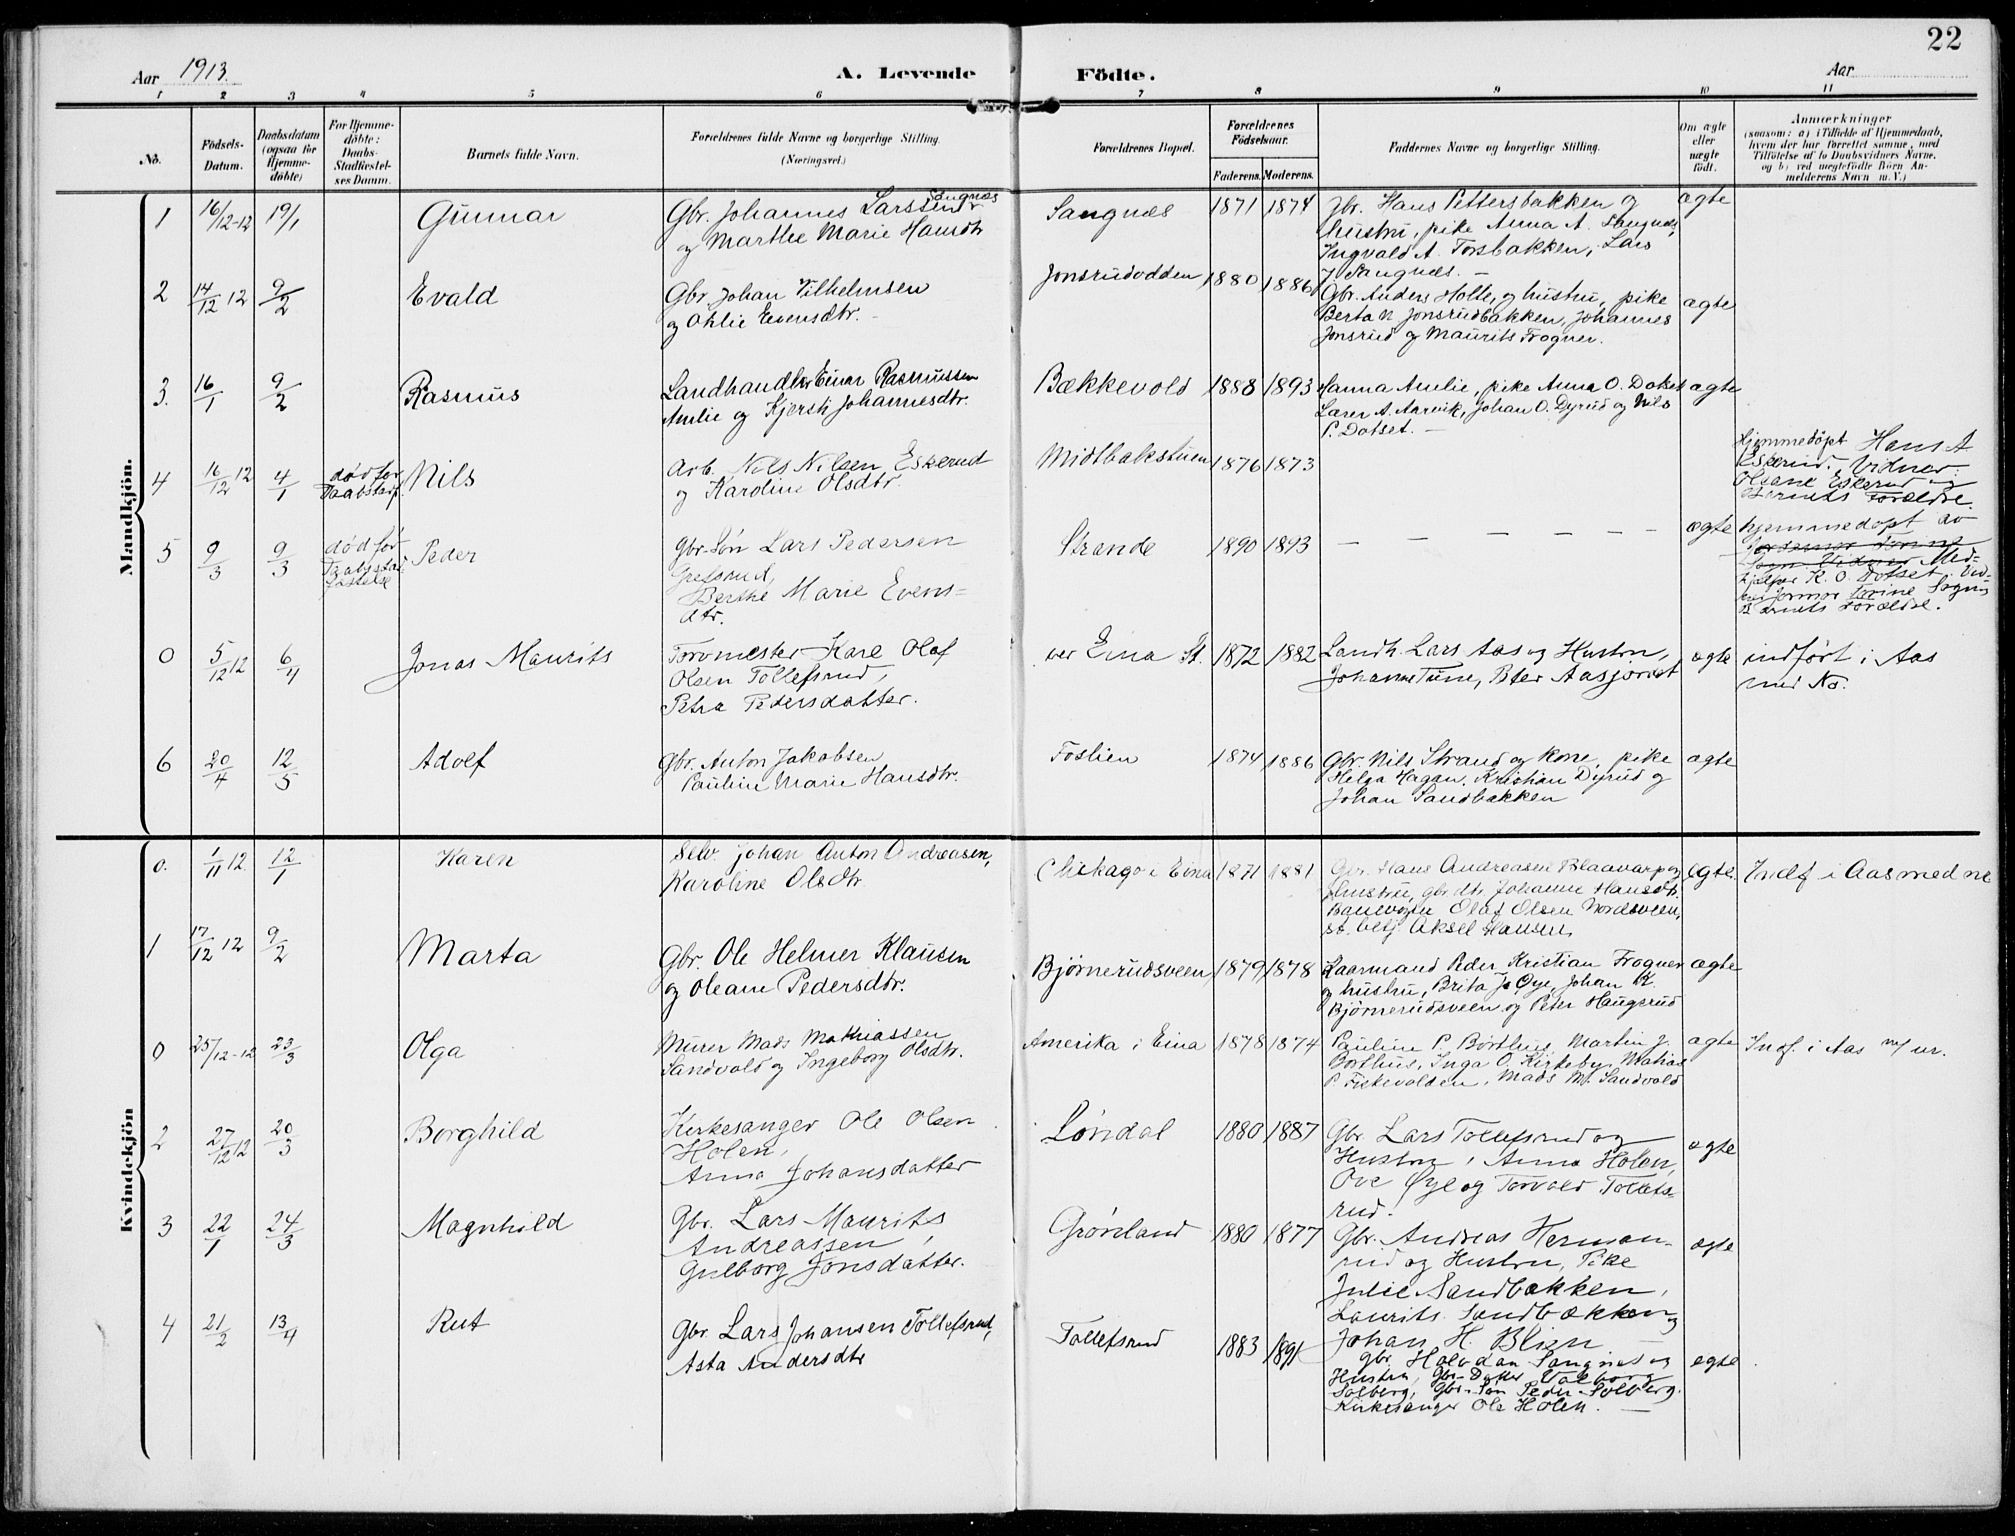 22
Aar 1913.
A. Levende Födte.
Aar
1 2 3 4 5 6 7 8 9 10 11
No.
Födsels-Datum.
Daabsdatum (ogsaa for Hjemme-döbte)
For Hjemme-döbte: Daabs-Stadfæstel-ses Datum.
Barnets fulde Navn.
Forældrenes fulde Navne og borgerlige Stilling.
(Næringsvei.)
Forældrenes Bopæl.
Forældrenes Födselsaar.
Faderens. Moderens.
Faddernes Navne og borgerlige Stilling.
Om ægte eller uægte födt.
Anmærkninger
(saasom: a) i Tilfælde af Hjemmedaab,
hvem der har forrettet samme, med
Tilföielse af to Daabsvidners Navne,
og b) ved uægtefödte Börn An-
melderens Navn m. V.)
Mandkjön.
1 16/12-12 19/1 Gunnar
Gbr. Johannes Larssen Sangnæs
og Marthe Marie Hansdtr
Sangnæs 1871 1874
Gbr. Hans Pettersbakken og
hustru, pike Anna A. Sangnæs,
Ingvald A. Forsbakken, Lars
J. Sangnæs. –
ægte
2 14/12 12 9/2 Evald
Gbr. Johan Vilhelmsen
og Ohlie Evensdtr. –
Jonsrudodden 1880 1886
Gbr. Anders Holte, og hustru, pike
Berta N. Jonsrudbakken, Johannes
Jonsrud og Maurits Frogner.
ægte
3. 16/1 9/2 Rasmus
Landhandler Einar Rasmussen
Amlie og Kjersti Johannesdtr.
Bækkevold 1888 1893
Hanna Amlie, pike Anna O. Dotset
Lærer A. Aarvik, Johan O. Dyrud og Nils
P. Dotset. –
ægte
4 16/12 12 4/1 død før Daabstadf. Nils
Arb. Nils Nilsen Eskerud
og Karoline Olsdtr.
Midtbakstuen 1876 1873
Hjemmedøpt Hans A
Eskerud. Vidner:
Olsane Eskerud og
Barnets Forældre.
5 9/3 9/3 død før Daabstadfæstelse Peder
Gbr. Søn Lars Pedersen
Grefsrud,
Berthe Marie Evens-
dtr.
Strande 1890 1893
– – – – – – –
ægte
hjemmedøpt av
Jordemor Torine
Sogn. Vidner Med-
hjælper K. O. Dotset. Vid-
ner Jormor Torine Sogn
Barnets Forældre.
0 5/12 12 6/4 Jonas Maurits
Torvmester Kare Olaf
Olsen Tollefsrud,
Petra Pedersdatter.
ver Eina St. 1872 1882
Landh. Lars Aas og Hustru,
Johanne Tune, Peter Aasjordet
ægte
indført i Aas
med No.
6 20/4 12/5 Adolf
Gbr. Anton Jakobsen
Pauline Marie Hansdtr.
Foslien 1874 1886
Gbr. Nils Strand og kone, pike
Helga Hagan, Kristian Dyrud og
Johan Sandbakken
ægte
Kvindekjön
0. 1/11 12. 12/1 Karen
Selv. Johan Anton Andreasen,
Karoline Olsdtr
Chikago i Eina 1871 1881
Gbr. Hans Andreasen Blaavarp og
hustru, gbr. dtr. Johanne Hansdtr.
Banevogter Olaf Olsen Nordsveen,
st. betj Aksel Hansen
ægte.
Indf i Aas med nr
1 17/12 12 9/2 Marta
Gbr. Ole Helmer Klausen
og Oleane Pedersdtr.
Bjørnerudsveen 1879 1878
Laarmand Peder Kristian Frogner
og hustru, Brita J. Øye, Johan K.
Bjørnerudsveen og Peter Haugsrud
ægte
0 25/12-12 23/3 Olga
Murer Mads Mathiassen
Sandvold og Ingeborg Olsdtr.
Amerika i Eina 1878 1874
Pauline P. Børthus, Martin J.
Borthus, Inga O. Kirkeby, Mathias
P. Fiskevolden, Mads M. Sandvold
ægte
Indf. i Aas m/ nr.
2 27/12 12 20/3 Borghild
Kirkesanger Ole Olsen
Holen,
Anna Johansdatter
Løndal 1880 1887
Gbr. Lars Tollefsrud og
Hustru, Anna Holen,
Ove Øye og Torvald Tollefs-
rud.
ægte
3 22/1 24/3 Magnhild
Gbr. Lars Maurits
Andreassen,
Gulborg Jonsdatter.
Grønland 1880 1877
Gbr. Andreas Herman-
rud og Hustru, Pike
Julie Sandbakken,
Laurits Sandbækken og
Johan H. Blien
ægte
4 21/2 13/4 Rut
Gbr. Lars Johansen Tollefsrud,
Asta Andersdtr
Tollefsrud 1883 1891
Gbr. Halvdan Sangnæs og
Hustru, Gbr-Datter Valborg
Solberg, Gbr.-Søn Peder Solberg.
Kirkesanger Ole Holen. –
ægte